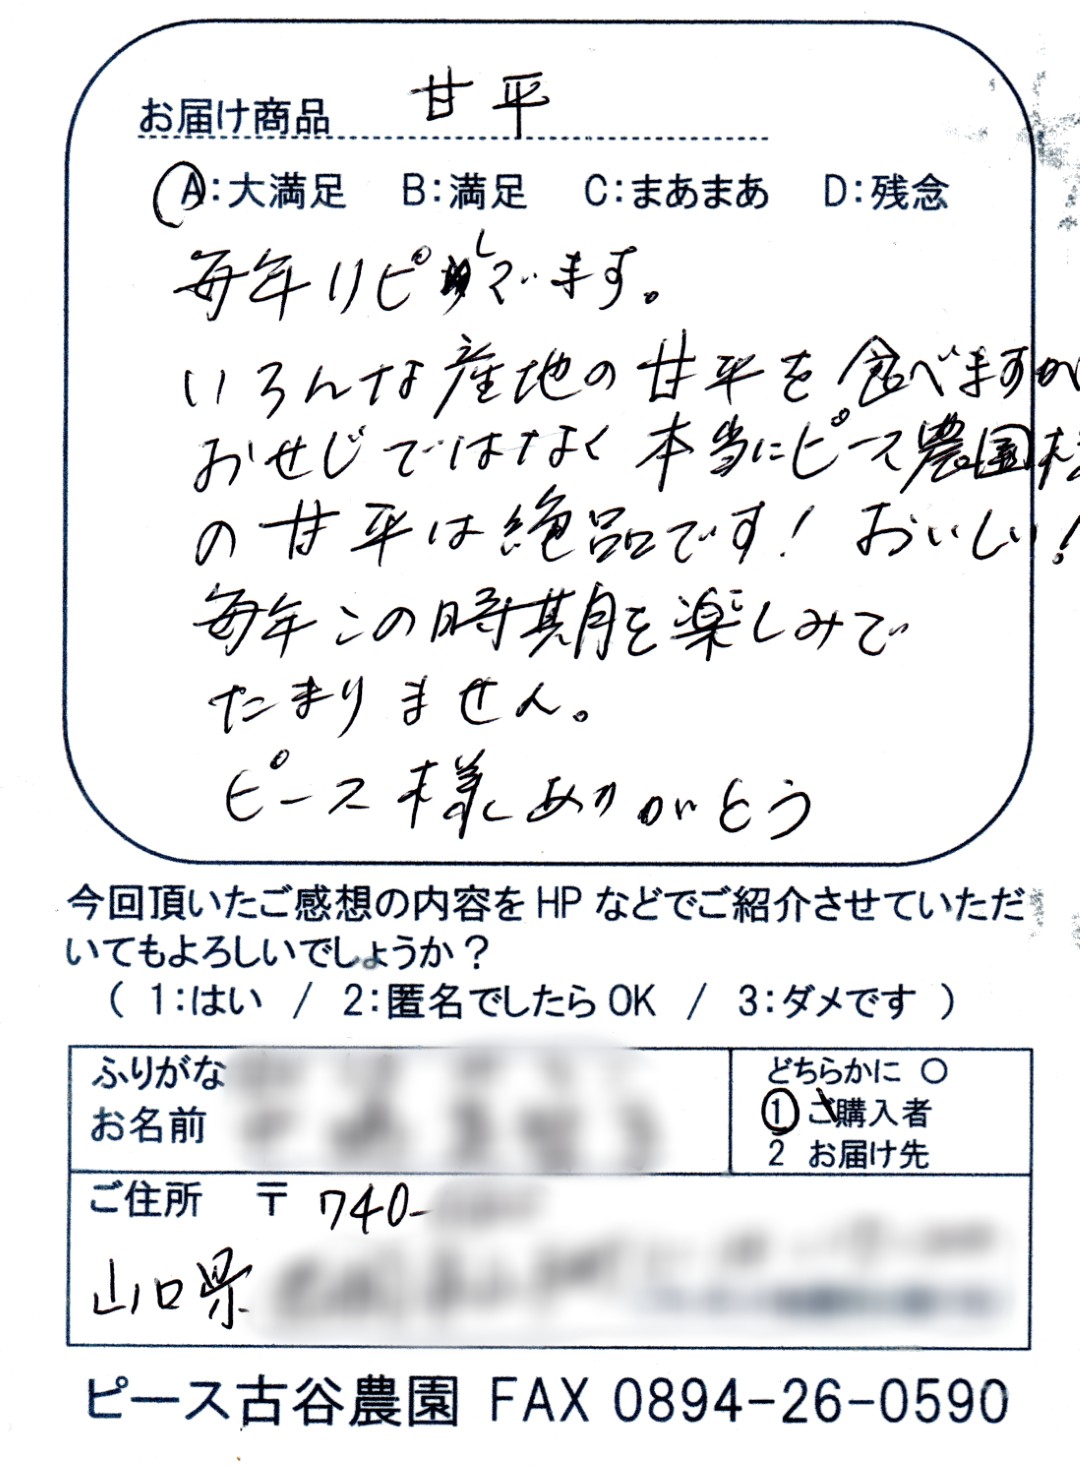 お届け商品 甘平
A:大満足 B:満足 C:まあまあ D:残念
毎年リピしてます。
いろんな産地の甘平を食べますが
おせじではなく本当にピース農園様
の甘平は絶品です! おいしい!
毎年この時期を楽しみで
たまりません。
ピース様ありがとう
今回頂いたご感想の内容をHPなどでご紹介させていただ
いてもよろしいでしょうか?
( 1:はい / 2:匿名でしたらOK / 3:ダメです )
ふりがな
お名前
どちらかに ○
1 ご購入者
2 お届け先
ご住所 〒 740-
山口県
ピース古谷農園 FAX 0894-26-0590